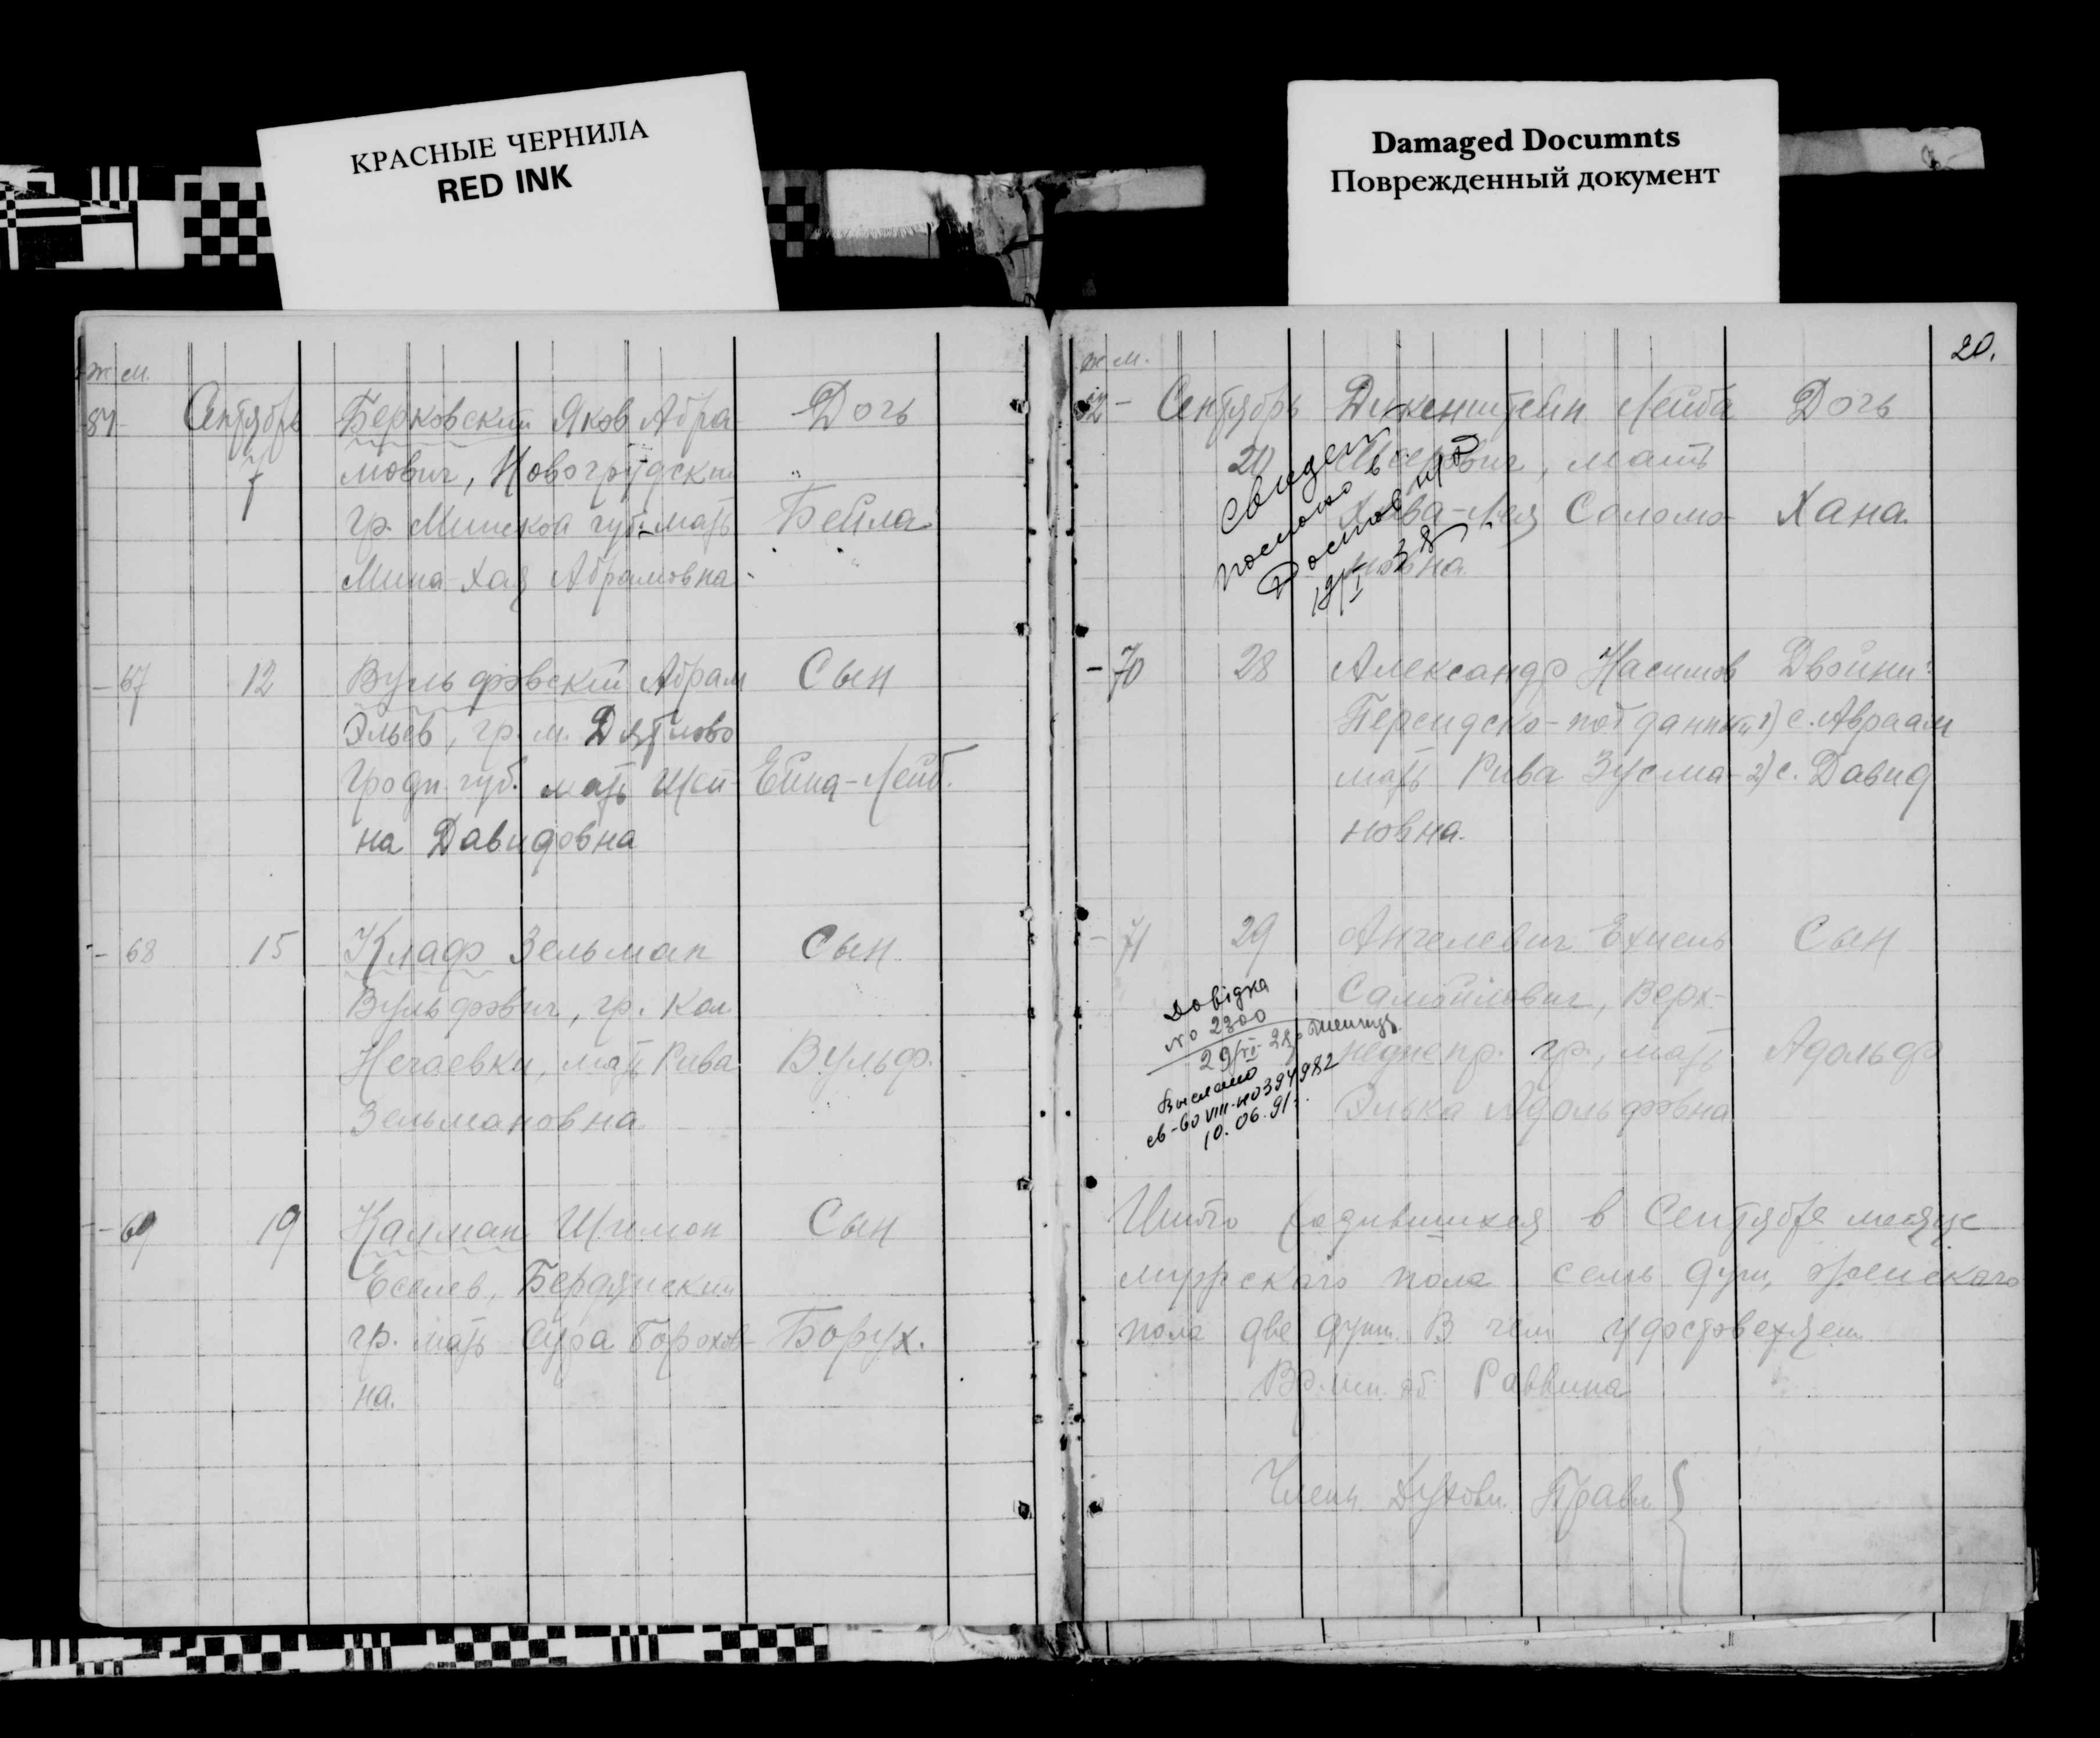 КРАСНЫЕ ЧЕРНИЛА
RED INK
Damaged Documnts
Поврежденный документ
ж м.
Сентябрь Берковский Яков Абра Дочь
7 мович, Новогрудский
гр. Минской губ. мать Бейла
Мина-Хая Абрамовна
67 12 Вульфовский Абрам Сын
Эльев, гр. м. Дятлово
Гродн. губ. мать Шей- Ейна-Лейб.
на Давидовна
- 68 15 Клаф Зельман Сын
Вульфович, гр. Кол.
Нечаевки, мать Рива Вульф.
Зельмановна
- 69 19 Калман Шимон Сын
Еселев, Бердянский
гр. мать Сура Борохов- Борух.
на.
20.
ж м.
Сентябрь Дикенштейн Лейба Дочь
20 мать
Хава-Лея Соломо- Хана.
новна
Свидет
послано в
Ростов н/Д
19/I 38
- 70 28 Александр Насимов Двойни:
Персидско-подданный 1) с. Авраам
мать Рива Зусма- 2) с. Давид
новна.
- 71 29 Ангелевич Ехиель Сын
Самойлович, Верх-
неднепр. гр., мать Адольф
Элька Адольфовна
Довідка
№ 2300
29/VI 38р
Выслано
св-во VIII-НО 394982
10.06.91г.
Итого родившихся в Сентябре месяце
мужского пола семь душ, женского
пола две души. В чем удостоверяем
Вр. исп. об. Раввина
Члены Духовн. Правл.